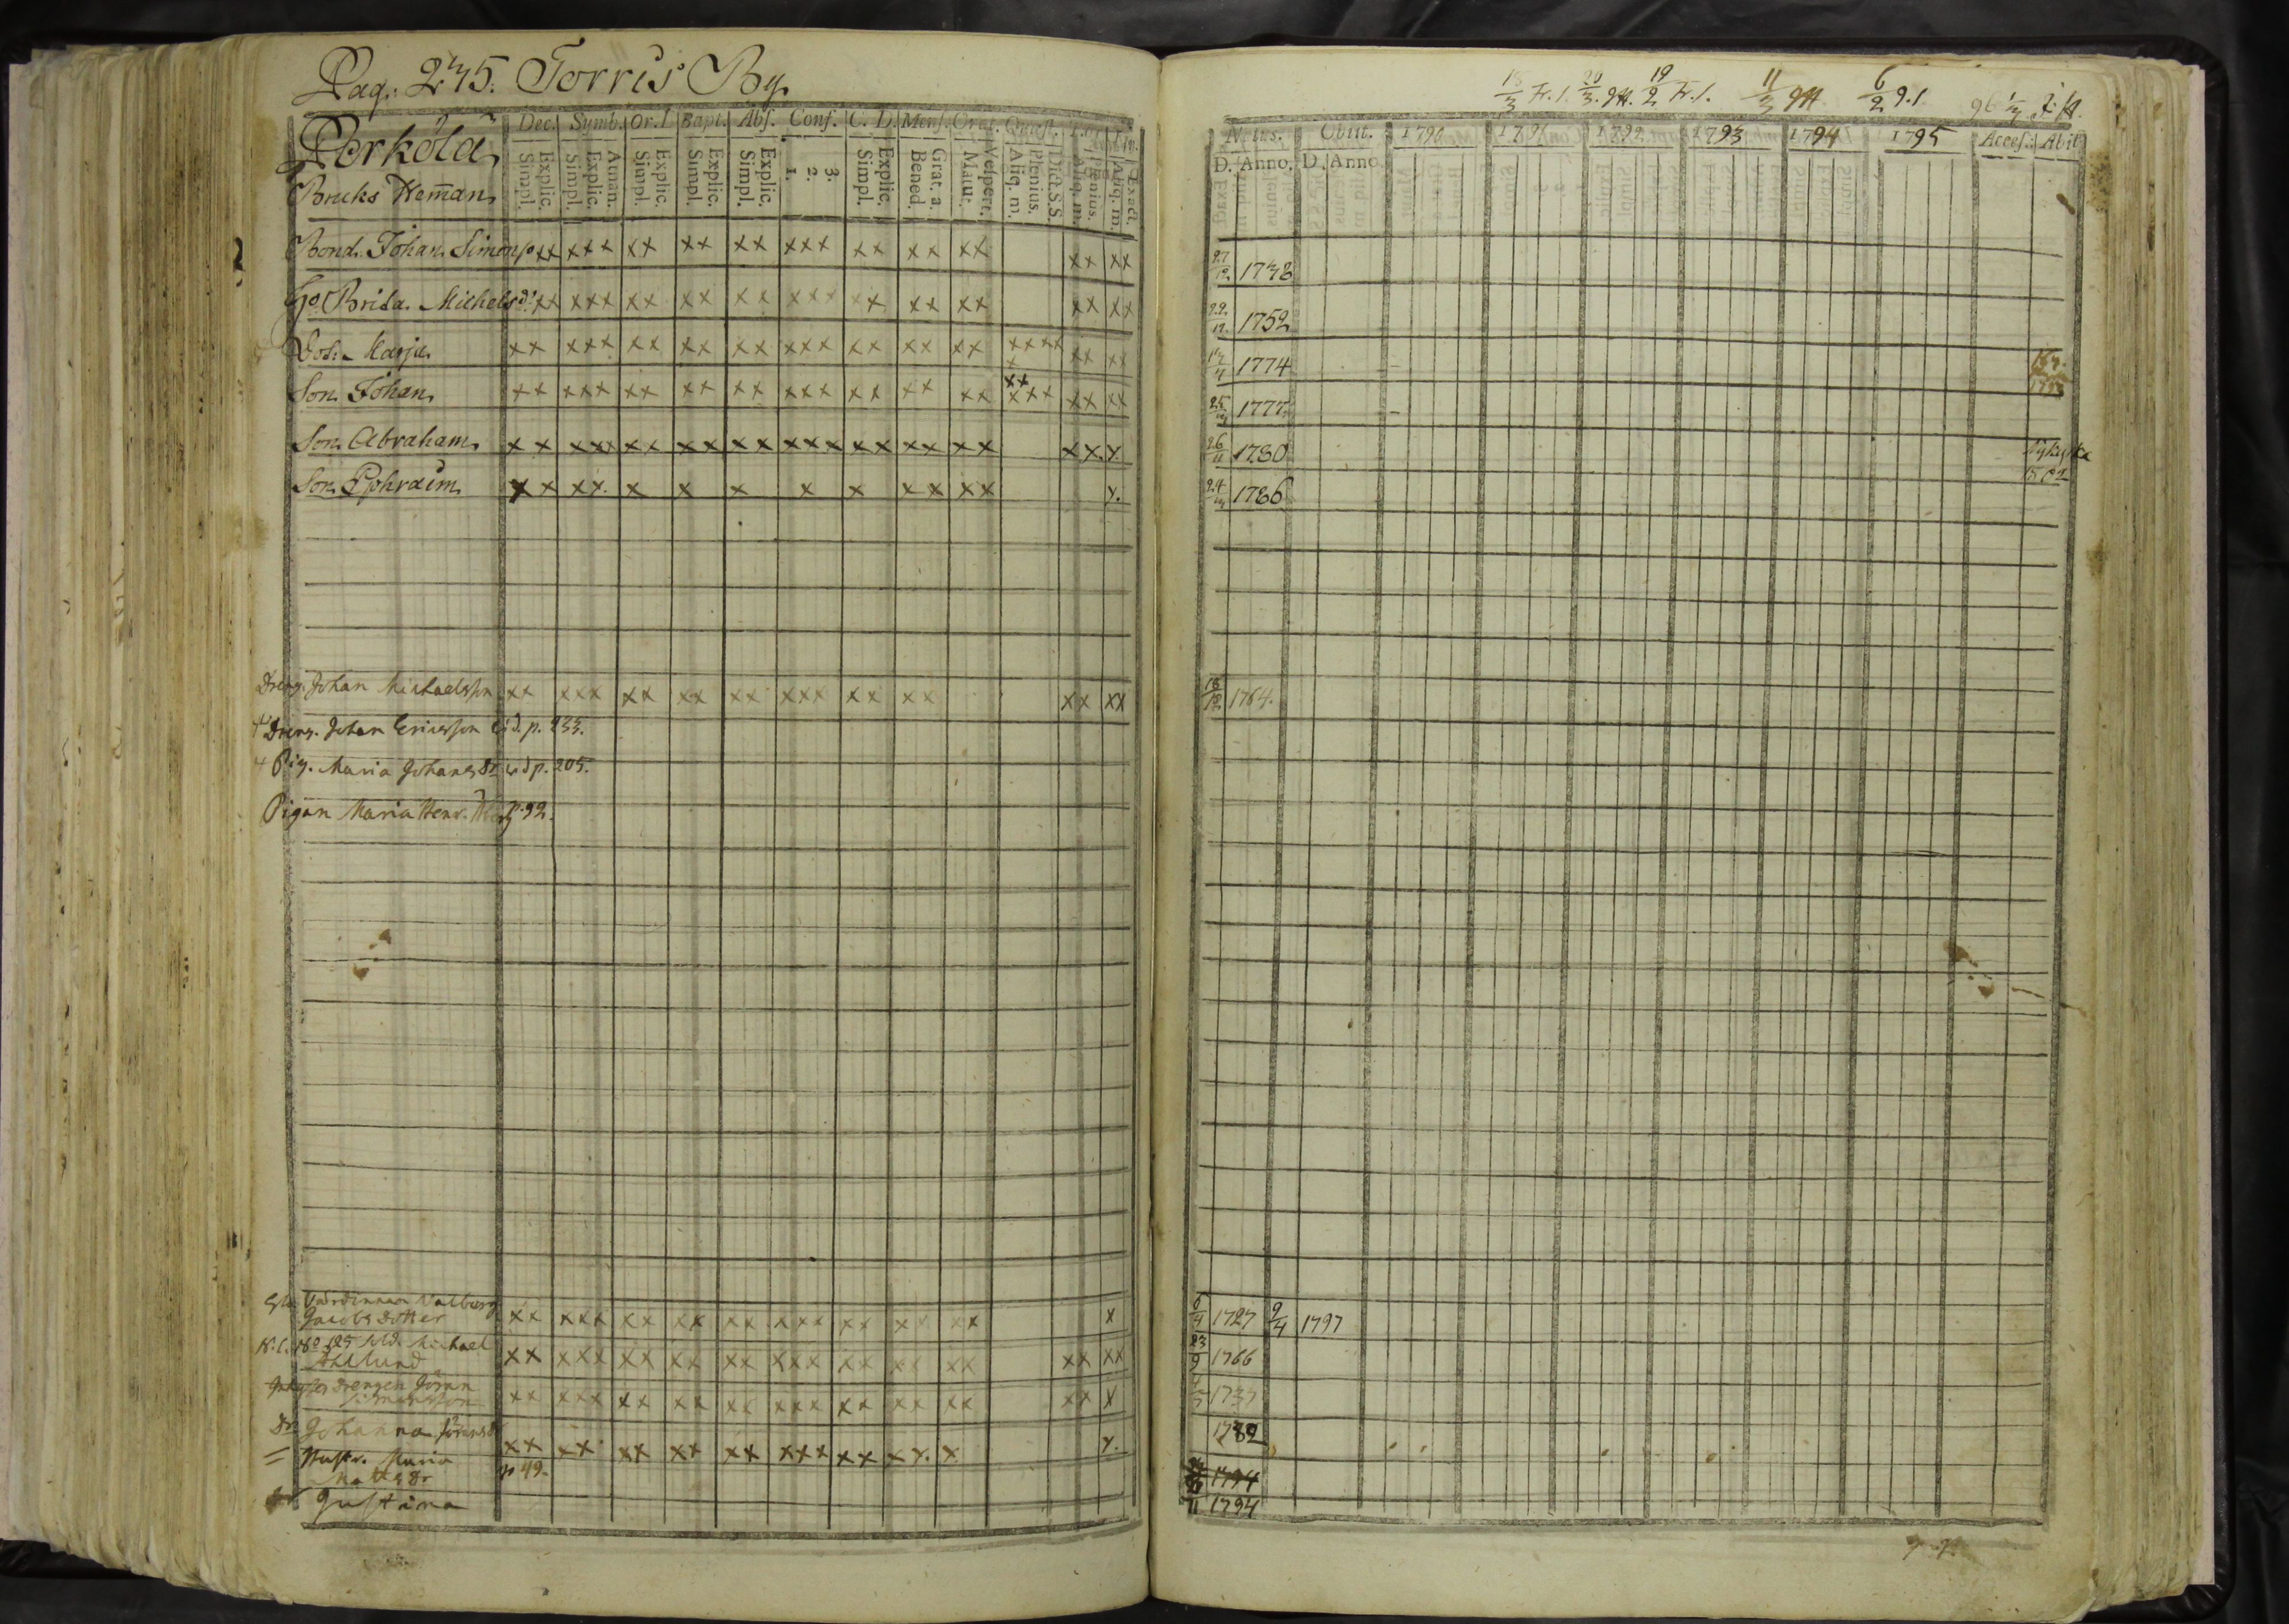 Pag. 245. Torris By.
Perkola
Bruks Hem̄an
Dec. Symb. Or. D. Bapt. Abs. Conf. C. D. Menf. Orat. Quæst.
Simpl. Explic. Simpl. Explic. Athan. Simpl. Explic. Simpl. Explic. Simpl. Explic. 1. 2. 3. Simpl. Explic. Bened. Grat. a. Matut. Vespert. Aliq. m. Plenius. Dict. S.S. Aliq. m. Plenius. Aliq. m. Exact.
Bond. Johan Simonss xx xxx xx xx xx xxx xx xx xx xx xx
Hu. Brita Michelsd: xx xxx xx xx xx xxx xx xx xx xx xx
Dot. Karja xx xxx xx xx xx xxx xx xx xx xxxx x xx xx
Son Johan xx xxx xx xx xx xxx xx xx xx xx xxx xx xx
Son Abraham xx xxx xx xx xx xxx xx xx xx xx x
Son Ephraim xx xx. x x x x x xx xx x.
Dreng. Johan Michaelsson xx xxx xx xx xx xxx xx xx xx xx
Dreng. Johan Ericsson vid. p. 233.
Pig. Maria Johansdr vid p. 205.
Pigan Maria Henr. p. 92.
Värdinnan Valborg
Jacobsdotter xx xxx xx xx xx xxx xx xx xx x
No 125 Sold. Michael
Ahlund xx xxx xx xx xx xxx xx xx xx xx xx
drengen Göran
Simonsson xx xxx xx xx xx xxx xx xx xx xx x
Dr Johanna Göransd xx xx xx xx xx xxx xx xx. x x.
= Hustr. Maria p 49.
Mattsdr
Justina
18/3 Fr. 1. 20/3. 19/2 Fr. 1. 11/3 6/2 9.1 96 1/3
Natus. Obiit. 1790 1791 1792 1793 1794 1795 Acces. Abit
D. Anno. D. Anno
27/12 1748
22/12 1752
1774
25 1777
26/11 1780
1802
24/3 1786
18/12 1764.
6/4 1727 9/4 1797
23/9 1766
1737
1782
1794
11 1794